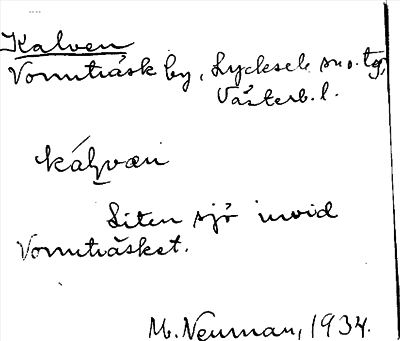 Kalven
Vormträsk by, Lycksele sn o. tg,
Västerb. l.
kálvœn
Liten sjö invid
Vormträsket.
M. Neuman, 1934.